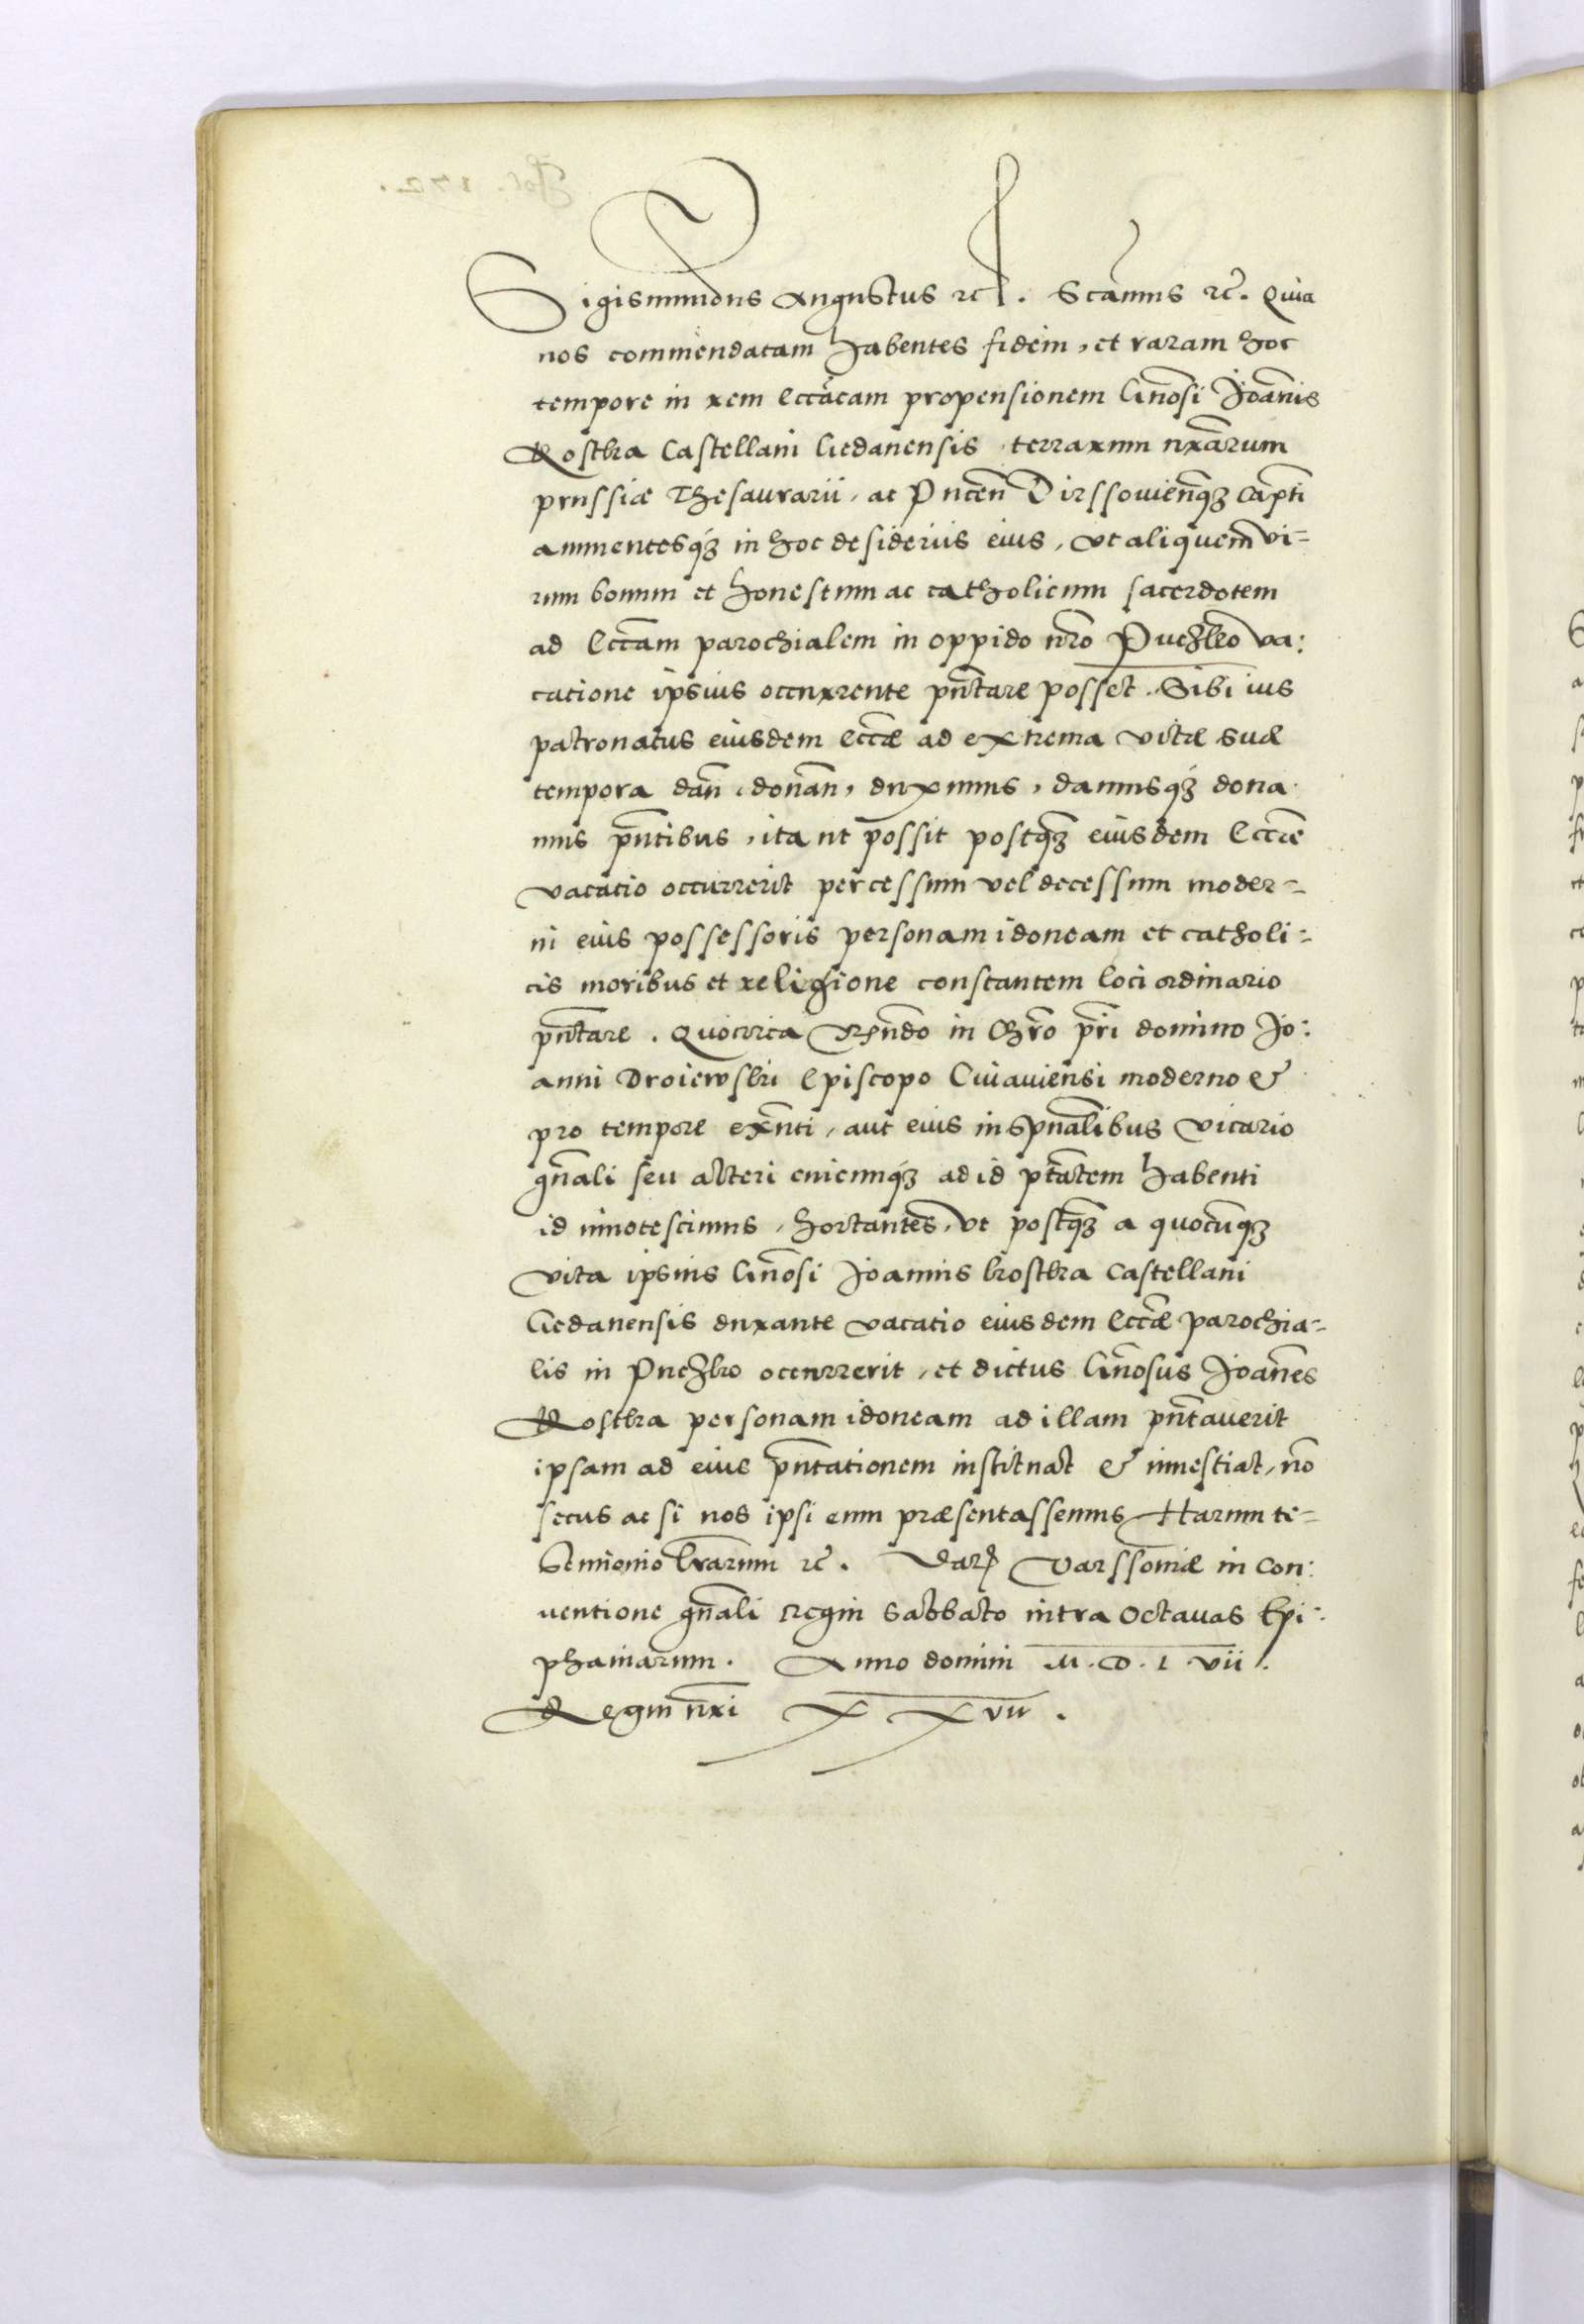 Sigismundus Augustus etc. Scãmus etc. Quia
nos commendatam habentes fidem, et raram hoc
tempore in rem Eccãcam propensionem Gñosi Joãnis
Kostka Castellani Gedanensis terrarum nrãrum
prussiæ Thesaurarii, ac Pucen̄ Dirssouienq̃ꝫ Capti
annuentesq́ꝫ in hoc desideriis eius, vt aliquem vi=
rum bonum et honestum ac catholicum sacerdotem
ad Eccãm parochialem in oppido nr̃o Puczko va:
catione ipsius occurrente pñtare posset. Sibi ius
patronatus eiusdem Eccæ ad extrema vitæ suæ
tempora dañ donañ, duximus, damusq́ꝫ dona
mus pñtibus, ita ut possit postq̃ꝫ eiusdem Eccæ
vacatio occurrerit per cessum vel decessum moder=
ni eius possessoris personam idoneam et catholi=
cis moribus et religione constantem loci ordinario
pñtare. Quocirca Rñdo in Chr̃o pr̃i domino Jo:
anni Droiewski Episcopo Cuiauiensi moderno &
pro tempore exñti, aut eius in spũalibus vicario
gñali seu alteri cuicumq́ꝫ ad id ptãtem habenti
id innotescimus, hortantes, vt postq̃ꝫ a quocũqꝫ
vita ipsius Gñosi Joannis kostka Castellani
Gedanensis durante vacatio eiusdem Eccæ parochia=
lis in Puczko occurrerit, et dictus Gñosus Joañes
Kostka personam idoneam ad illam pñtauerit
ipsam ad eius pñtationem instituat & inuestiat, nõ
secus ac si nos ipsi eum præsentassemus Harum te=
stimonio l̃rarum etc. Datꝭ Varssouiæ in con:
uentione gñali Regni sabbato intra Octauas Epi:
phaniarum. Anno domini M. D. L vii.
Regni nr̃i XXvii.